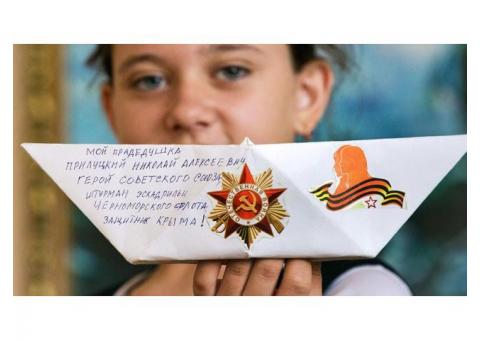 МОЙ ПРАДЕДУШКА
ПРИЛУЦКИЙ НИКОЛАЙ АЛЕКСЕЕВИЧ
ГЕРОЙ СОВЕТСКОГО СОЮЗА
ШТУРМАН ЭСКАДРИЛЬИ
ЧЕРНОМОРСКОГО ФЛОТА
ЗАЩИТНИК КРЫМА!
ОТЕЧЕСТВЕННАЯ ВОЙНА